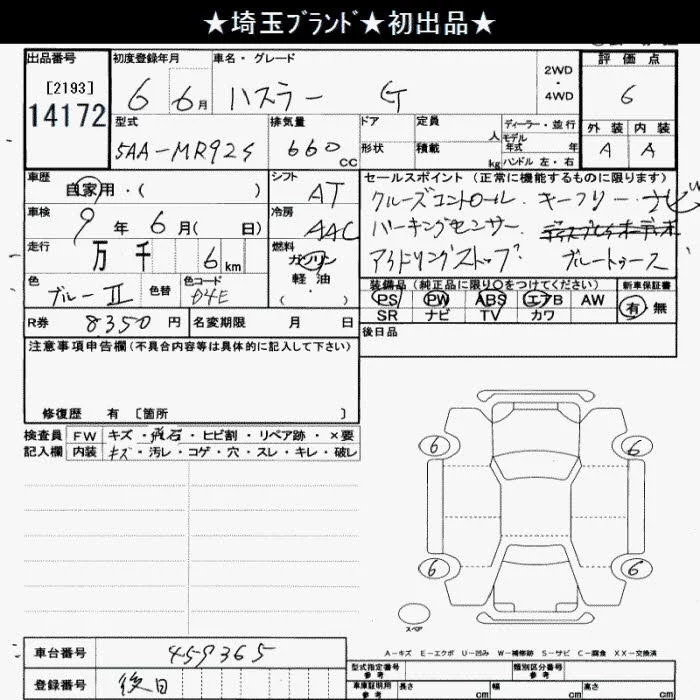 ★埼玉ブランド★初出品★
出品番号 初度登録年月 車名・グレード 2WD・4WD 評価点
[2193] 6 6月 ハスラー G 6
14172
型式 排気量 ドア 定員 人 ディーラー・並行 外装 内装
5AA-MR92S 660 CC 形状 積載 kg モデル年式 年 ハンドル 左・右 A A
車歴 自家用・( ) シフト AT セールスポイント (正常に機能するものに限ります)
車検 9年 6月( 日) 冷房 AAC クルーズコントロール・キーフリー・ナビ
走行 万 千 6km 燃料 ガソリン パーキングセンサー
軽油 アイドリングストップ ブルートゥース
色 ブルーⅡ 色替 色コード D4E ( )
装備品 (純正品に限り○をつけてください) 新車保証書
PS PW ABS エアB AW 有・無
SR ナビ TV カワ
R券 8350円 名変期限 月 日 後日品
注意事項申告欄 (不具合内容等は具体的に記入して下さい)
修復歴 有 [箇所 ]
検査員 FW キズ・飛石・ヒビ割・リペア跡・×要
記入欄 内装 キズ・汚レ・コゲ・穴・スレ・キレ・破レ
6 6
6 6
スペア
A-キズ E-エクボ U-凹み W-補修跡 S-サビ C-腐食 XX-交換済
車台番号 459365
型式指定番号 参考 類別区分番号 参考
登録番号 後日
車庫証明用 参考 長さ cm 幅 cm 高さ cm